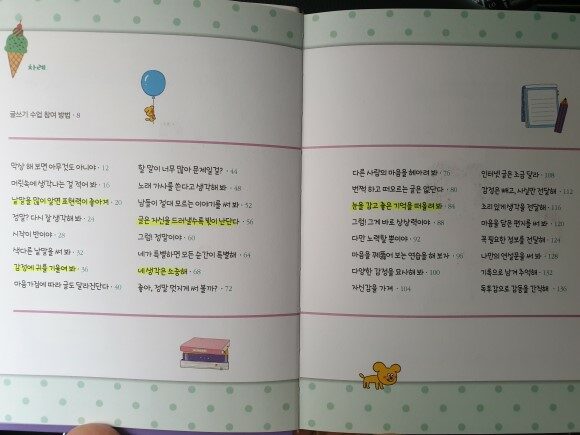 차례
글쓰기 수업 참여 방법 · 8
막상 해 보면 아무것도 아니야 · 12
머릿속에 생각나는 걸 적어 봐 · 16
낱말을 많이 알면 표현력이 좋아져 · 20
정말? 다시 잘 생각해 봐 · 24
시작이 반이야 · 28
색다른 낱말을 써 봐 · 32
감정에 귀를 기울여 봐 · 36
마음가짐에 따라 글도 달라진단다 · 40
할 말이 너무 많아 문제일걸? · 44
노래 가사를 쓴다고 생각해 봐 · 48
남들이 절대 모르는 이야기를 써 봐 · 52
글은 자신을 드러낼수록 빛이 난단다 · 56
그럼! 정말이야 · 60
네가 특별하면 모든 순간이 특별해 · 64
네 생각은 소중해 · 68
좋아, 정말 멋지게 써 볼까? · 72
다른 사람의 마음을 헤아려 봐 · 76
번쩍 하고 떠오르는 글은 없단다 · 80
눈을 감고 좋은 기억을 떠올려 봐 · 84
그럼! 그게 바로 상상력이야 · 88
다만 노력할 뿐이야 · 92
마음을 꿰뚫어 보는 연습을 해 보자 · 96
다양한 감정을 묘사해 봐 · 100
자신감을 가져 · 104
인터넷 글은 조금 달라 · 108
감정은 빼고, 사실만 전달해 · 112
조리 있게 생각을 전달해 · 116
마음을 담은 편지를 써 봐 · 120
꼭 필요한 정보를 전달해 · 124
나만의 연설문을 써 봐 · 128
기록으로 남겨 추억해 · 132
독후감으로 감동을 간직해 · 136